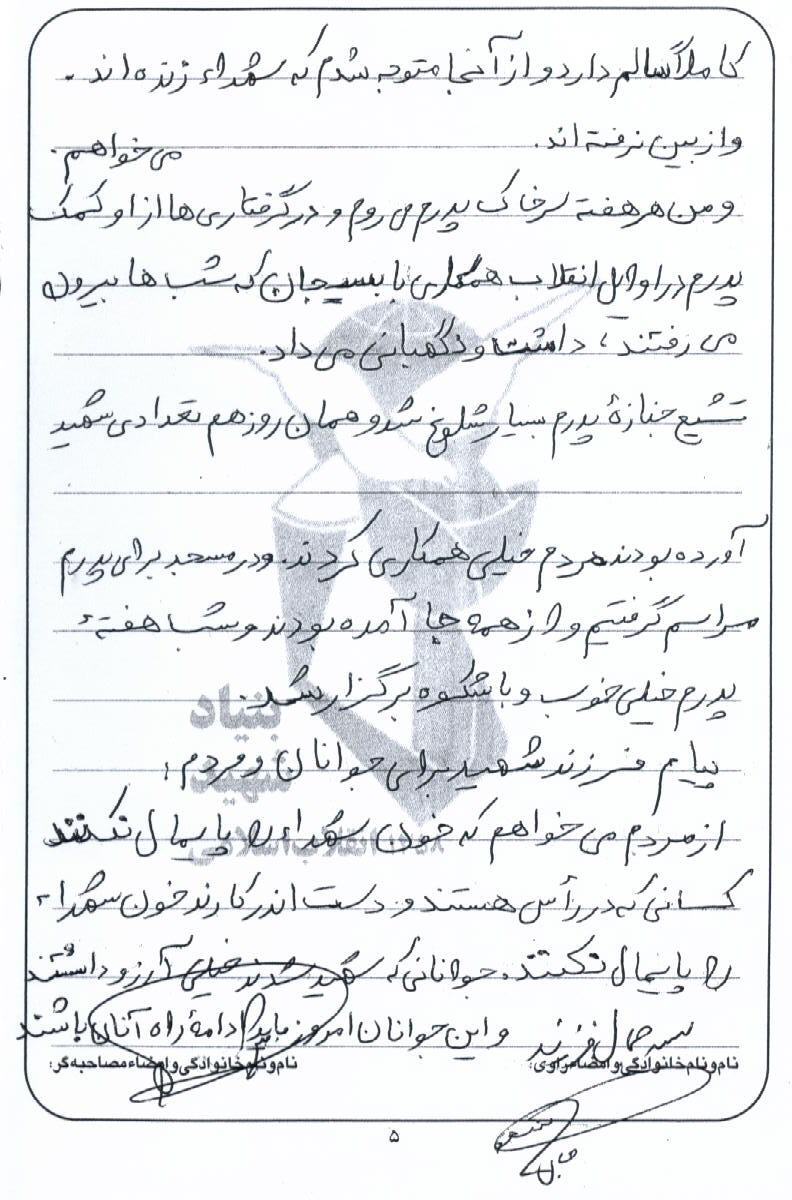 کاملاً سالم دارد و از آنجا متوجه شدم که شهداء زنده اند.
و از بین نرفته اند.
می خواهم.
و من هر هفته سر خاک پدرم می روم و در گرفتاری ها از او کمک
پدرم در اوایل انقلاب همکاری با بسیجیان که شب ها بیرون
می رفتند، داشت و نگهبانی می داد.
تشیع جنازهٔ پدرم بسیار شلوغ شد و همان روز هم تعدادی شهید
آورده بودند مردم خیلی همکاری کردند. و در مسجد برای پدرم
مراسم گرفتیم و از همه جا آمده بودند و شب هفتهٔ
پدرم خیلی خوب و با شکوه برگزار شد.
بنیاد
پیام فرزند شهید برای جوانان و مردم:
شهید
از مردم می خواهم که خون شهداء را پایمال نکنند
انقلاب اسلامی
کسانی که در رأس هستند و دست اندرکارند خون شهداء
را پایمال نکنند. جوانانی که شهید شدند خیلی آرزو داشتند
و این جوانان امروز باید ادامهٔ راه آنان باشند
فرزند
نام و نام خانوادگی و امضاء راوی:
نام و نام خانوادگی و امضاء مصاحبه گر:
۵